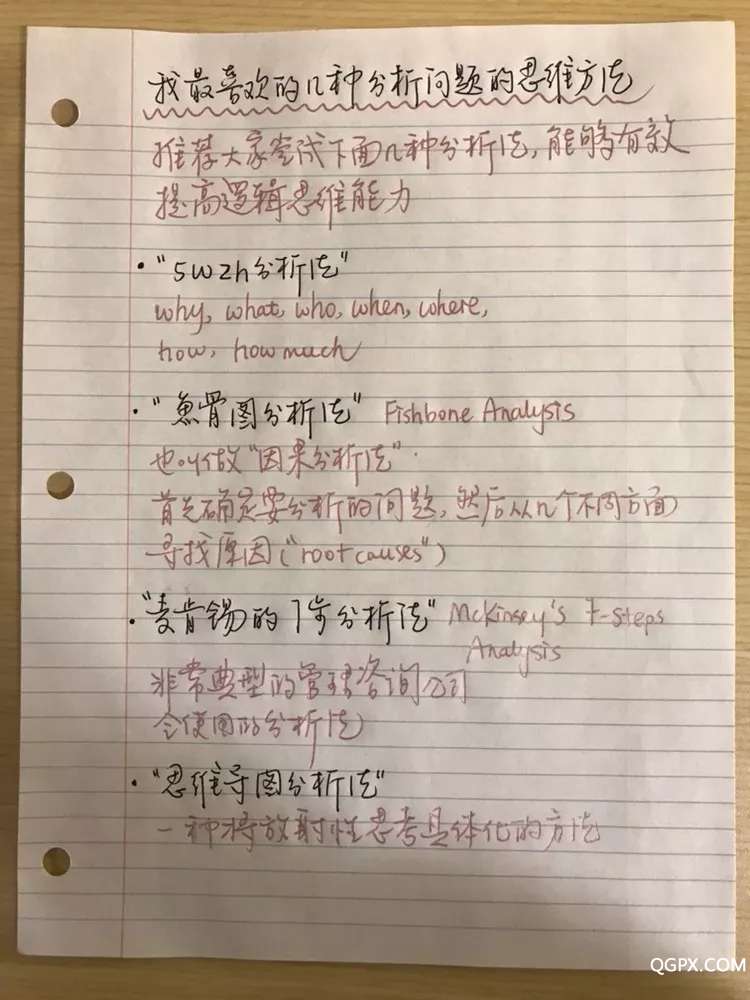 我最喜欢的几种分析问题的思维方法
推荐大家尝试下面几种分析法,能够有效
提高逻辑思维能力
·"5W2h分析法"
why, what, who, when, where,
how, how much
·"鱼骨图分析法" Fishbone Analysis
也叫做"因果分析法".
首先确定要分析的问题,然后从几个不同方面
寻找原因("root causes")
·"麦肯锡的7步分析法" McKinsey's 7-Steps
Analysis
非常典型的管理咨询公司
会使用的分析法
·"思维导图分析法"
一种将放射性思考具体化的方法
QGPX.COM